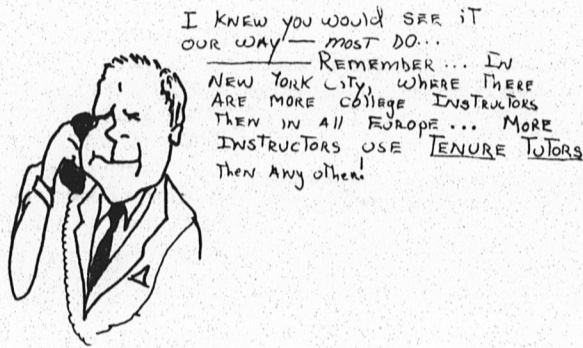 I KNEW YOU WOULD SEE IT
OUR WAY — MOST DO...
REMEMBER... IN
NEW YORK CITY, WHERE THERE
ARE MORE COllEGE INSTRUCTORS
THEN IN All EUROPE... MORE
INSTRUCTORS USE TENURE TUTORS
THEN ANY OTHER!